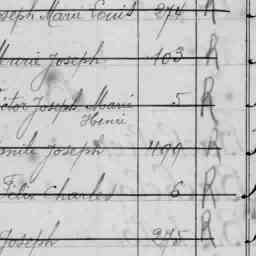 Joseph Marie Louis 274 R
Marie Joseph 103 R
Victor Joseph Marie 5 R
Henri
Joseph 499 R
Félix Charles 6 R
Joseph 295 R